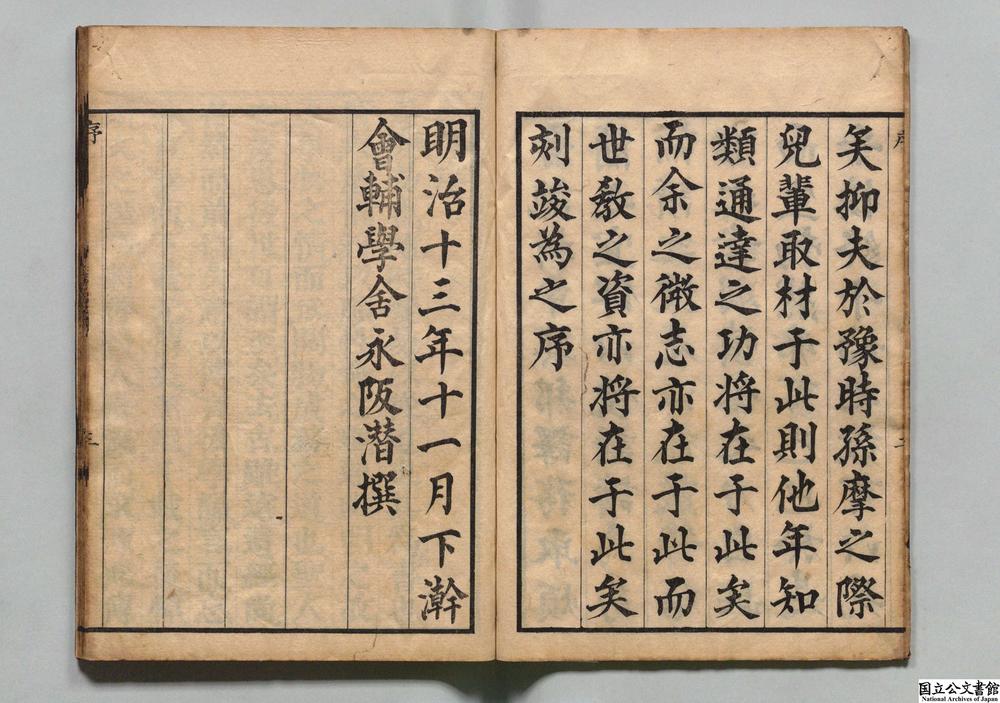 矣抑夫於豫時孫摩之際
兒輩取材于此則他年知
類通達之功將在于此矣
而余之微志亦在于此而
世敎之資亦将在于此矣
刻竣為之序
明治十三年十一月下澣
會輔學舍永阪潜撰
序
三
国立公文書館
National Archives of Japan